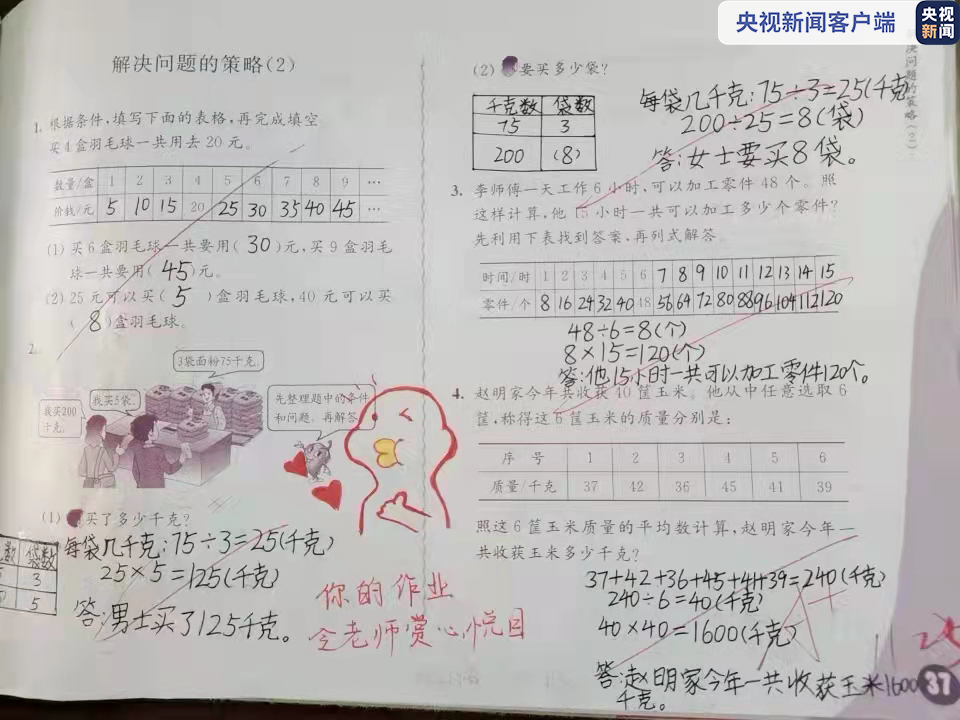 央视新闻客户端
央视
新闻
解决问题的策略(2)
1. 根据条件,填写下面的表格,再完成填空。
买4盒羽毛球一共用去20元。
数量/盒 1 2 3 4 5 6 7 8 9 …
价钱/元 5 10 15 20 25 30 35 40 45 …
(1) 买6盒羽毛球一共要用( 30 )元,买9盒羽毛
球一共要用( 45 )元。
(2) 25元可以买( 5 )盒羽毛球,40元可以买
( 8 )盒羽毛球。
2.
3袋面粉75千克。
我买200
千克。
我买5袋。
先整理题中的条件
和问题,再解答。
(1) 买了多少千克?
数 袋数
3
5
每袋几千克:75÷3=25(千克)
25×5=125(千克)
答:男士买了125千克。
你的作业
令老师赏心悦目
(2) 要买多少袋?
千克数 袋数
75 3
200 (8)
每袋几千克:75÷3=25(千克
200÷25=8(袋)
答:女士要买8袋。
3. 李师傅一天工作6小时,可以加工零件48个。照
这样计算,他15小时一共可以加工多少个零件?
先利用下表找到答案,再列式解答。
时间/时 1 2 3 4 5 6 7 8 9 10 11 12 13 14 15
零件/个 8 16 24 32 40 48 56 64 72 80 88 96 104 112 120
48÷6=8(个)
8×15=120(个)
答:他15小时一共可以加工零件120个。
4. 赵明家今年共收获40筐玉米。他从中任意选取6
筐,称得这6筐玉米的质量分别是:
序号 1 2 3 4 5 6
质量/千克 37 42 36 45 41 39
照这6筐玉米质量的平均数计算,赵明家今年一
共收获玉米多少千克?
37+42+36+45+41+39=240(千克)
240÷6=40(千克)
40×40=1600(千克)
答:赵明家今年一共收获玉米1600
千克。
37